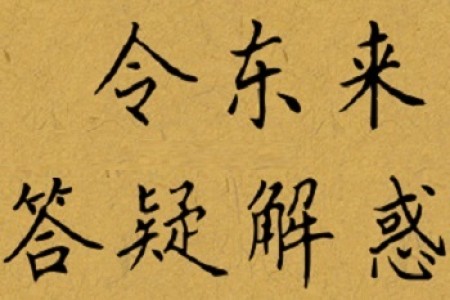 令东来
答疑解惑